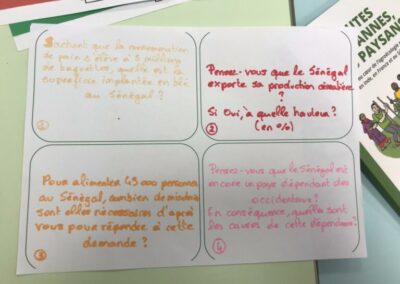 Sachant que la consommation
de pain s'élève à 8 millions
de baguettes, quelle est la
superficie implantée en blé
au Sénégal ?
1
Pensez-vous que le Sénégal
exporte sa production céréalière
?
Si Oui, à quelle hauteur ?
(en %)
2
Pour alimenter 45 000 personnes
au Sénégal, combien de
sont elles nécessaires d'après
vous pour répondre à cette
demande ?
3
Pensez-vous que le Sénégal est
encore un pays dépendant des
occidentaux ?
En conséquence, quelles sont
les causes de cette dépendance ?
4
PAYSANS